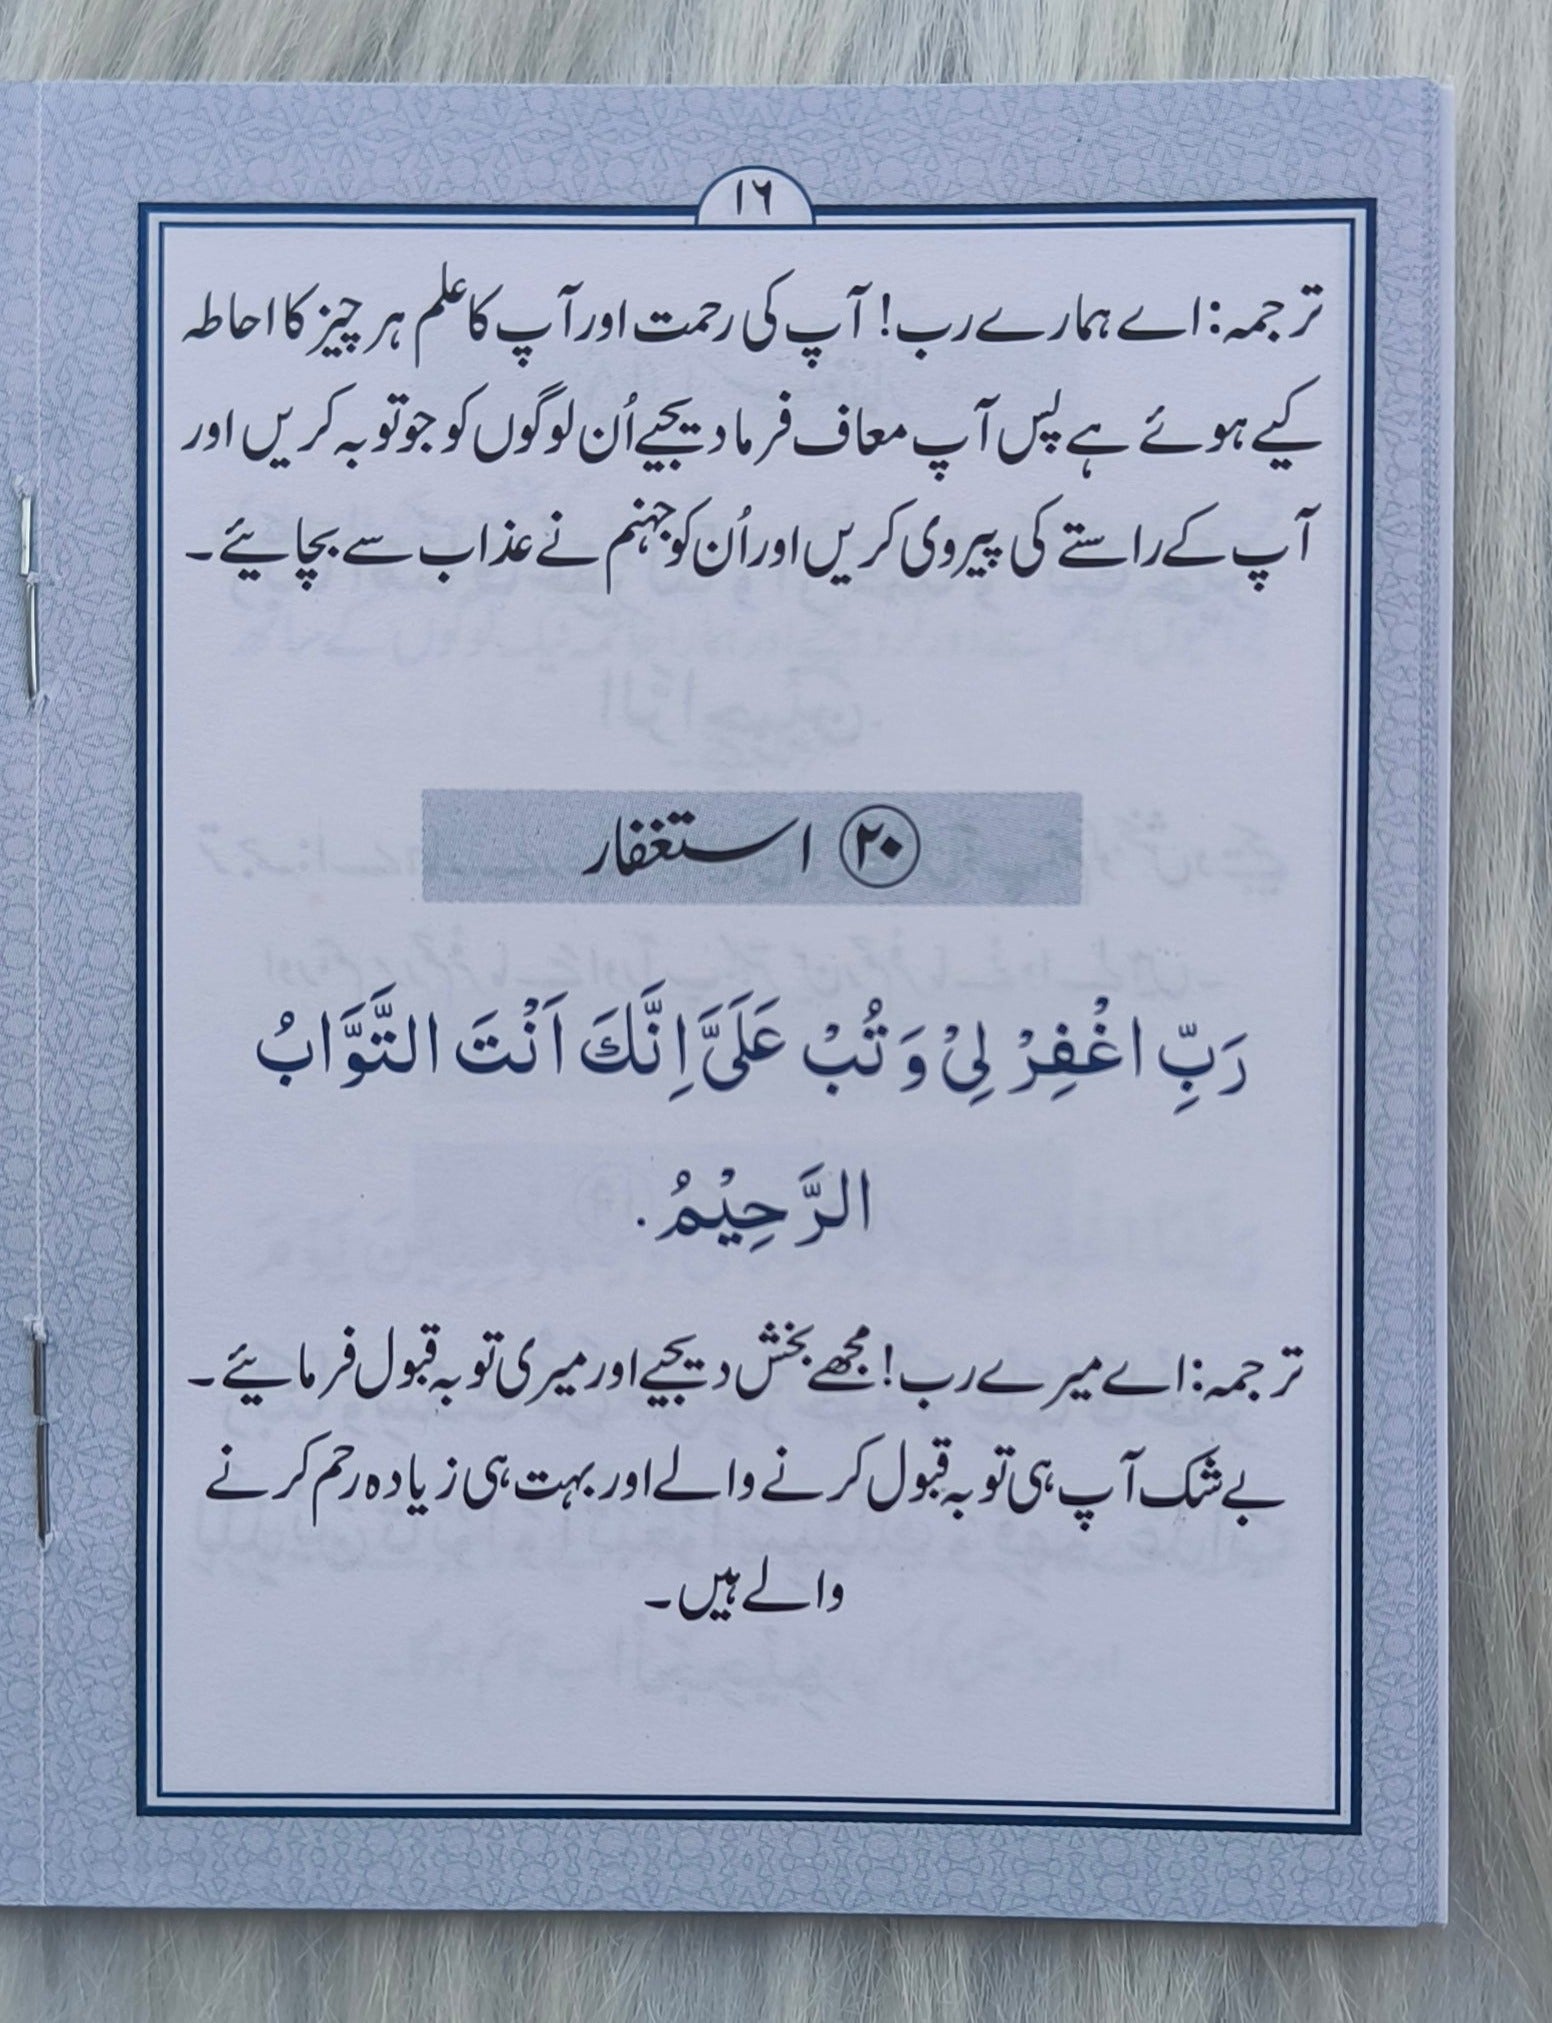 ١٦
ترجمہ: اے ہمارے رب! آپ کی رحمت اور آپ کا علم ہر چیز کا احاطہ
کیے ہوئے ہے پس آپ معاف فرما دیجیے اُن لوگوں کو جو توبہ کریں اور
آپ کے راستے کی پیروی کریں اور اُن کو جہنم نے عذاب سے بچائیے۔
۲۰ استغفار
رَبِّ اغْفِرْ لِیْ وَ تُبْ عَلَیَّ اِنَّكَ اَنْتَ التَّوَّابُ
الرَّحِیْمُ.
ترجمہ: اے میرے رب! مجھے بخش دیجیے اور میری توبہ قبول فرمائیے۔
بے شک آپ ہی توبہ قبول کرنے والے اور بہت ہی زیادہ رحم کرنے
والے ہیں۔